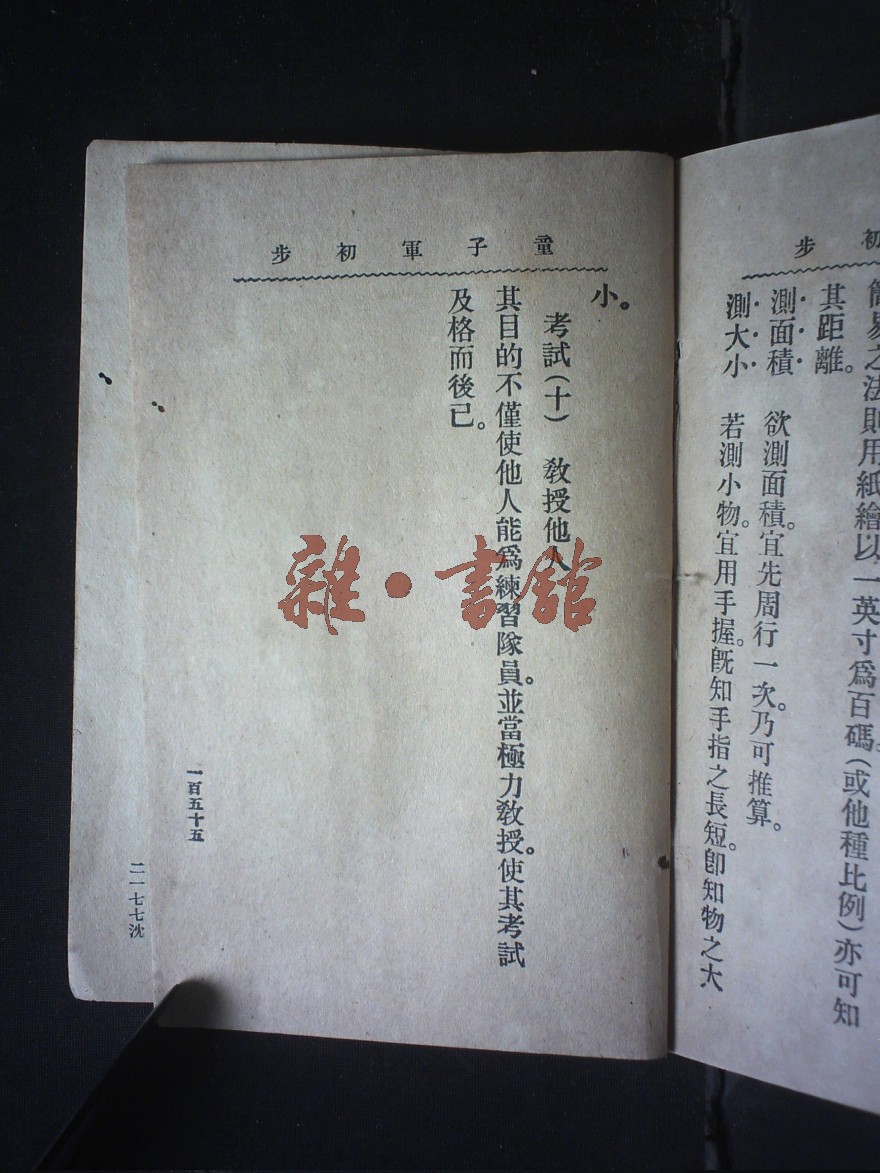 初步
簡易之法則用紙繪以一英寸爲百碼。(或他種比例)亦可知
其距離。
測面積　欲測面積。宜先周行一次。乃可推算。
測大小　若測小物。宜用手握。旣知手指之長短。卽知物之大
童子軍初步
小。
考試(十)　敎授他人
其目的不僅使他人能爲練習隊員。並當極力敎授。使其考試
及格而後已。
一百五十五
二一七七沈
雜·書館